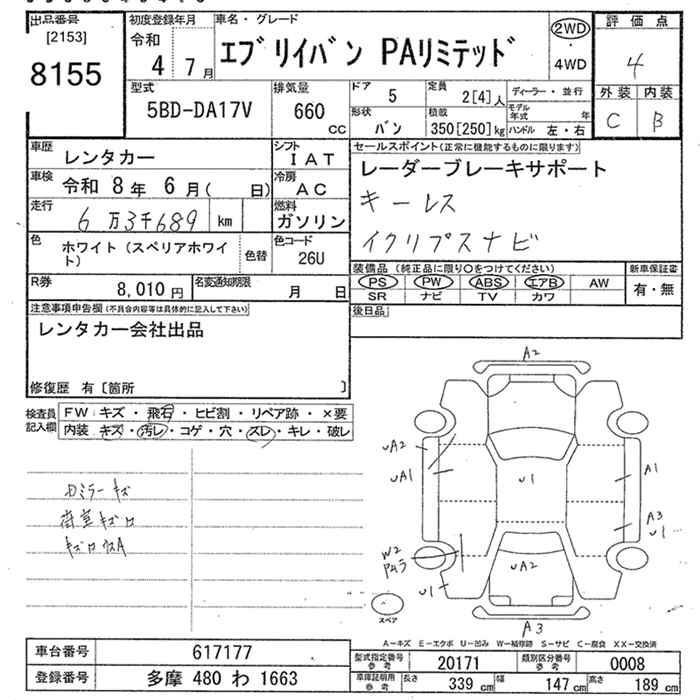 出品番号
[2153]
8155
初度登録年月
令和
4 7月
車名・グレード
エブリイバン PAリミテッド
2WD
・
4WD
評価点
4
外装 内装
C B
型式
5BD-DA17V
排気量
660
CC
ドア
5
定員
2[4]人
ディーラー・並行
形状
バン
積載
350[250]kg
モデル年式 年
ハンドル 左・右
車歴
レンタカー
シフト
IAT
車検
令和 8年 6月( 日)
冷房
AC
走行
6万3千689 km
燃料
ガソリン
色
ホワイト(スペリアホワイト)
色替
色コード
26U
R券
8,010円
名変通知期限
月 日
セールスポイント(正常に機能するものに限ります)
レーダーブレーキサポート
キーレス
イクリプスナビ
装備品(純正品に限り○をつけてください)
PS PW ABS エアB AW
SR ナビ TV カワ
新車保証書
有・無
後日品
注意事項申告欄(不具合内容等は具体的に記入して下さい)
レンタカー会社出品
修復歴 有[箇所 ]
検査員
記入欄
FW キズ・飛石・ヒビ割・リペア跡・×要
内装 キズ・汚レ・コゲ・穴・スレ・キレ・破レ
荷室キズ
A2
UA2
UA1
U1
A1
A3
U1
W2
UA2
U1
A3
スペア
A-キズ E-エクボ U-凹み W-補修跡 S-サビ C-腐食 XX-交換済
車台番号
617177
登録番号
多摩 480 わ 1663
型式指定番号
参考
20171
類別区分番号
参考
0008
車庫証明用
参考
長さ
339cm
幅
147cm
高さ
189cm